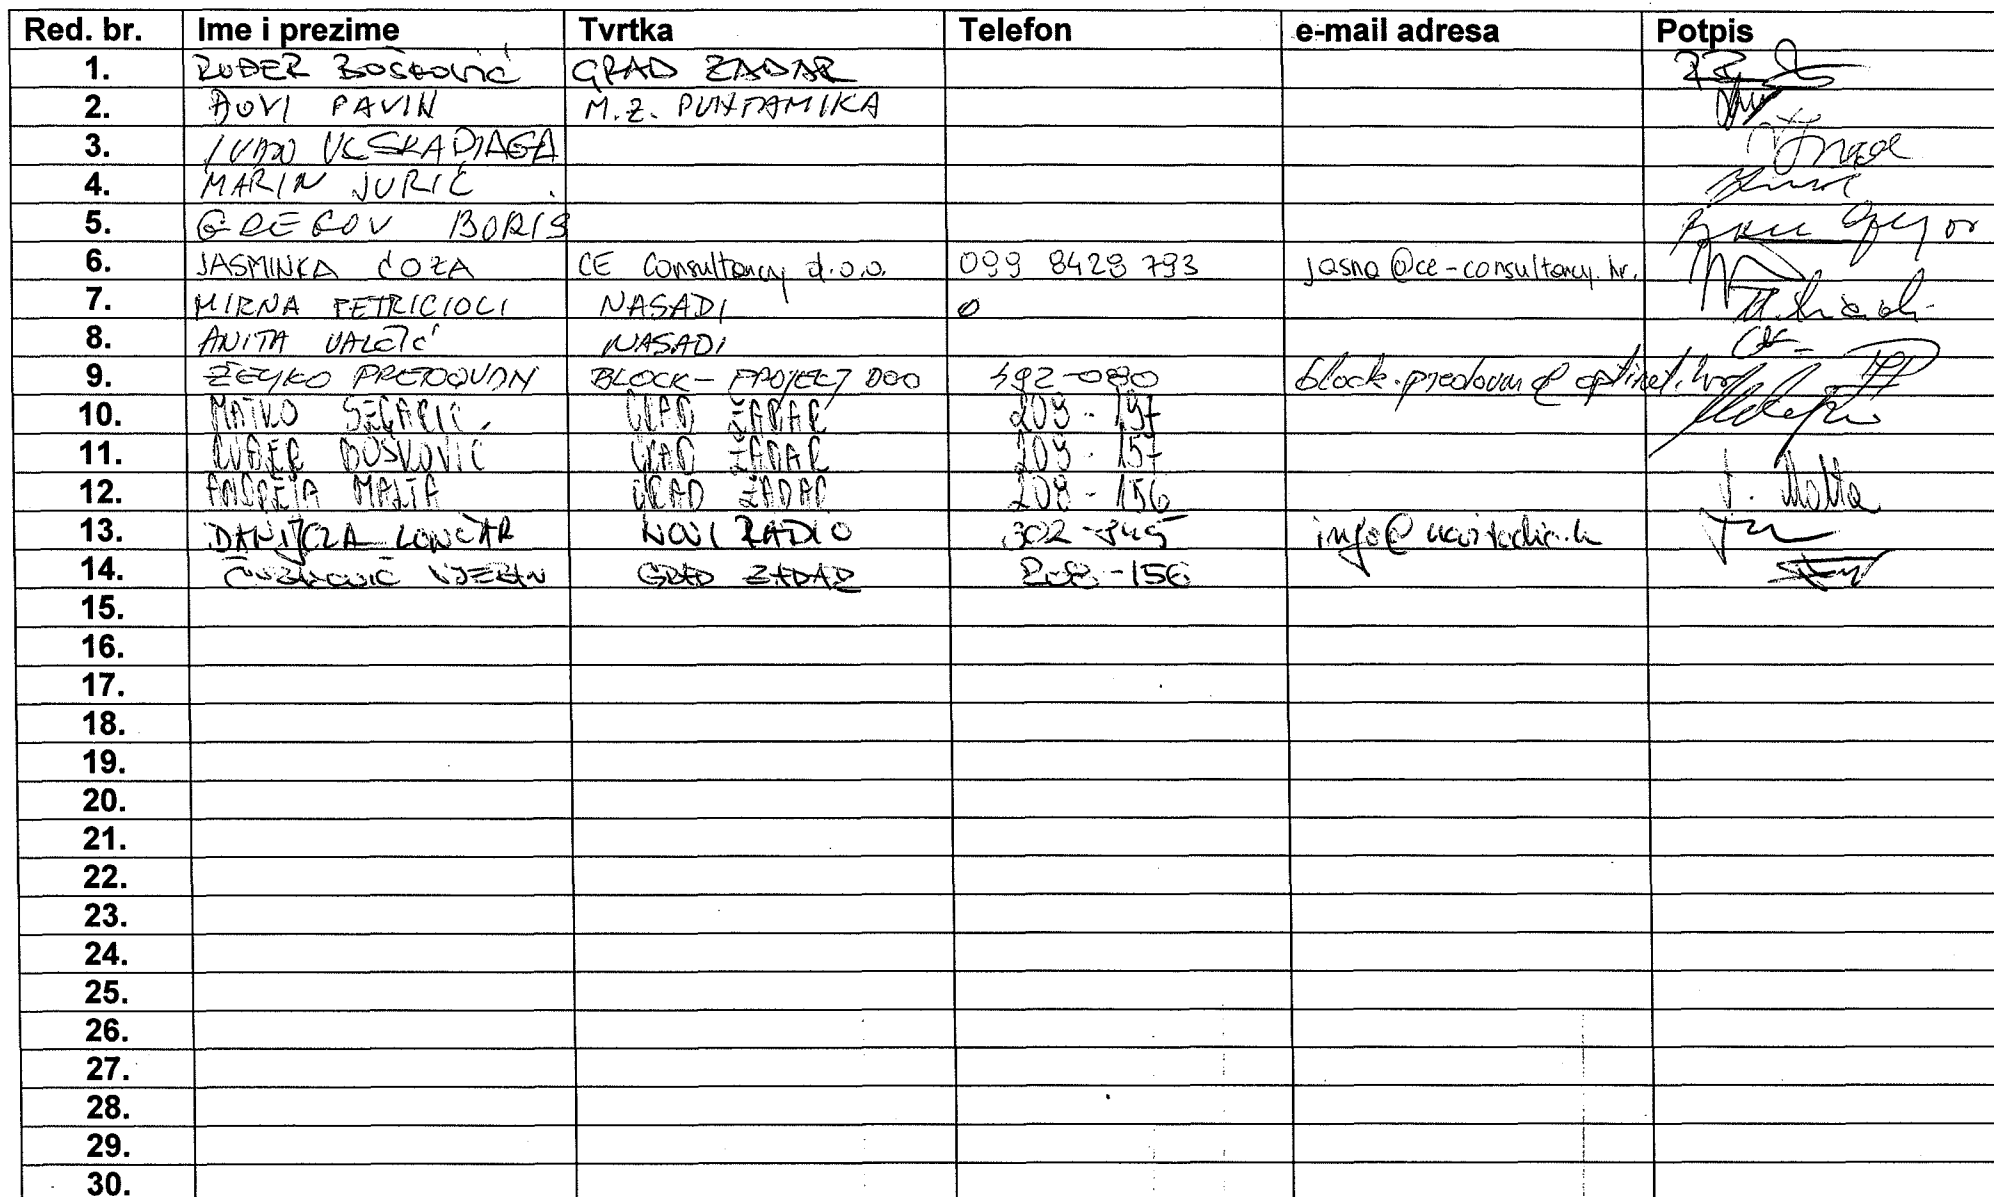 Red. br. Ime i prezime Tvrtka Telefon e-mail adresa Potpis
1. RUĐER BOŠKOVIĆ GRAD ZADAR
2. PAVIN M.Z. PUNTAMIKA
3. IVAN
4. MARIN JURIĆ
5. GREGOV BORIS
6. JASMINKA ĆOZA CE Consultancy d.o.o. 099 8429 793 jasna@ce-consultancy.hr.
7. MIRNA PETRICIOLI NASADI
8. ANITA NASADI
9. ŽELJKO PREDOVAN BLOCK-PROJECT DOO 392-080 block.predovan@optinet.hr
10. MATKO SEGARIĆ GRAD ZADAR
11. RUĐER BOŠKOVIĆ GRAD ZADAR
12. ANDREJA MALTA GRAD ZADAR 208-156 A. Malta
13. DANIJELA LONČAR NOVI RADIO 302-845 info@noviradio.hr
14. GRAD ZADAR 208-156
15.
16.
17.
18.
19.
20.
21.
22.
23.
24.
25.
26.
27.
28.
29.
30.